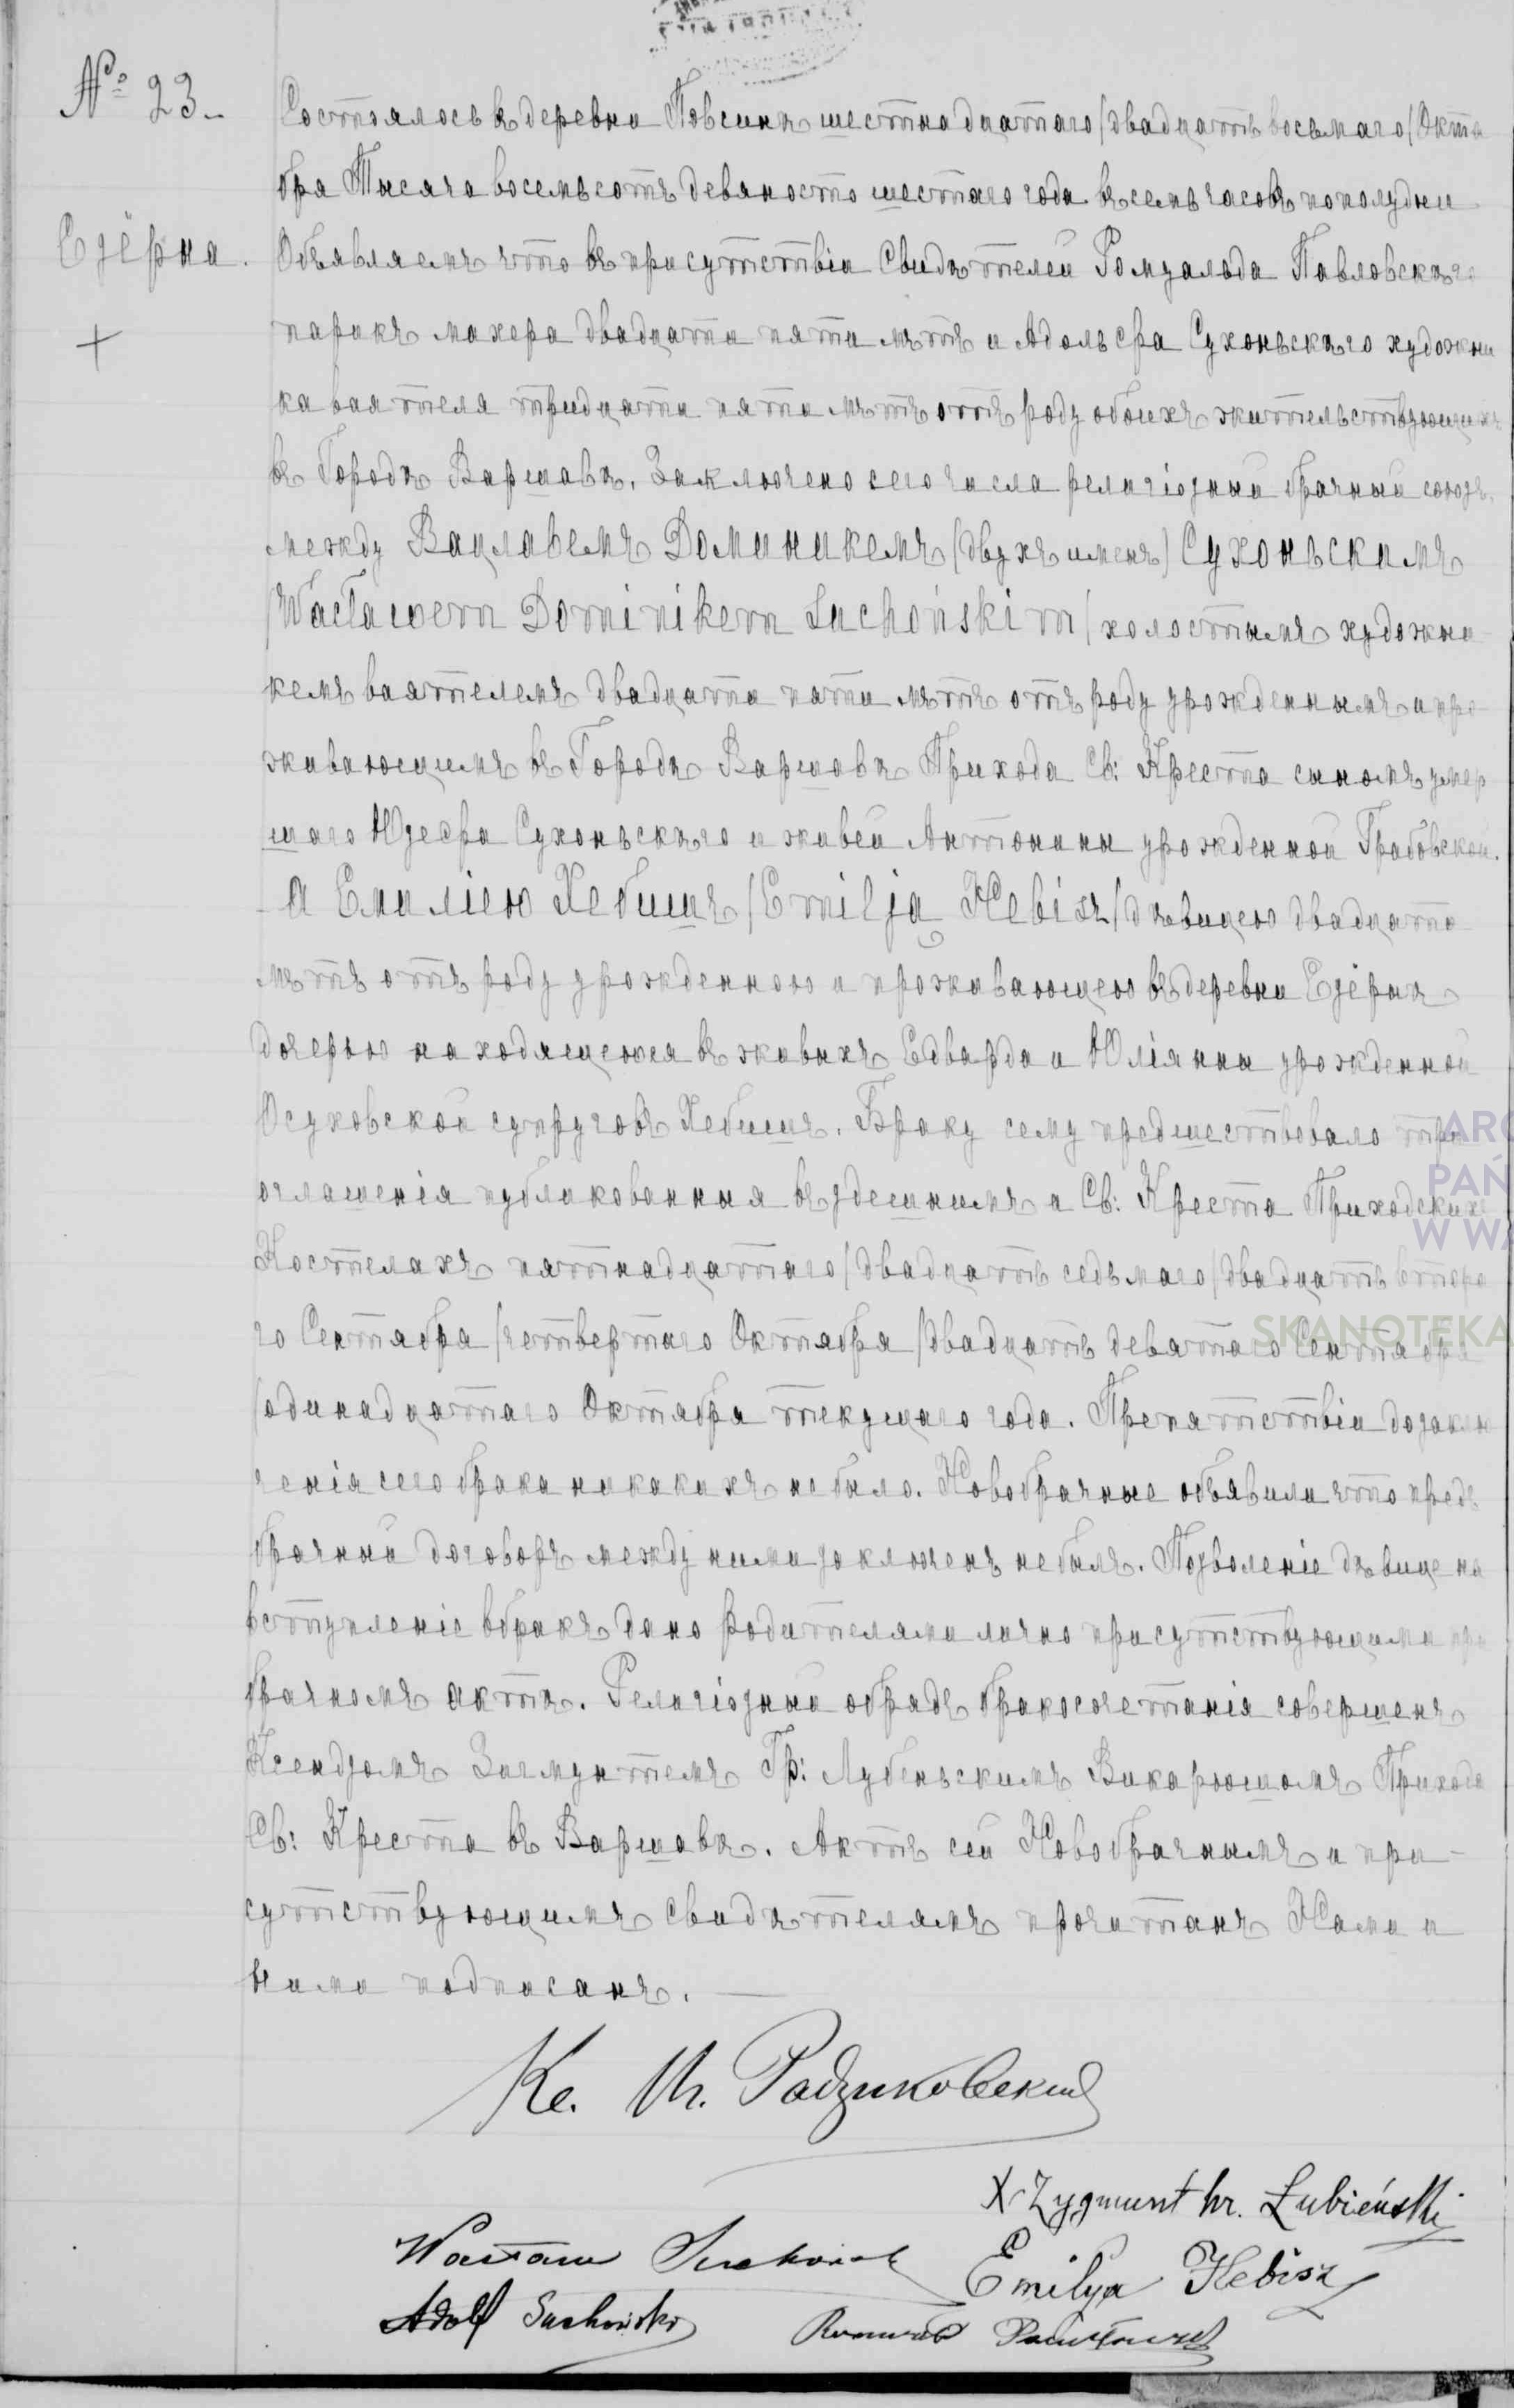 № 23.
Езёрна.
+
Состоялось въ деревни Повсинѣ шестнадцатаго/двадцать восьмаго/Октя
бря Тысяча восемьсотъ девяносто шестаго года въ семь часовъ пополудни
Объявляемъ что въ присутствіи Свидѣтелей Ромуальда Павловскаго
парикъ махера двадцати пяти лѣтъ и Адольфа Сухоньскаго художни
ка ваятеля тридцати пяти лѣтъ отъ роду обоихъ жительствующихъ
въ Городѣ Варшавѣ, Заключено сего числа религіозный брачный союзъ
между Вацлавемъ Доминикемъ (двухъ именъ) Сухоньскимъ
/Wacławem Dominikem Suchońskim/ холостымъ художни-
кемъ ваятелемъ двадцати пяти лѣтъ отъ роду урожденнымъ и про-
живающимъ въ Городѣ Варшавѣ Прихода Св: Креста сыномъ умер
шаго Юзефа Сухоньскаго и живей Антонины урожденной Грабовской.
- а Емиліею Хебишъ /Emilją Hebisz/ дѣвицею двадцати
лѣтъ отъ роду урожденною и проживающею въ деревни Езёрнѣ
дочерью находящеюся въ живыхъ Едварда и Юліянны урожденной
Осуховской супруговъ Хебишъ. Браку сему предшествовало три
оглашенія публикованныя въ здешнимъ и Св: Креста Приходскихъ
Костелахъ пятнадцатаго/двадцать седьмаго/двадцать второ
го Сентября /четвертаго Октября /двадцать девятаго Сентября
/одинадцатаго Октября текущаго года. Препятствіи до заклю
ченія сего брака никакихъ небыло. Новобрачные объявили что предъ
брачный договоръ между ними заключенъ небылъ. Позволеніе дѣвице на
вступленіе вбракъ дано родителями лично присутствующими при
брачномъ актѣ. Религіозный обрядъ бракосочетанія совершенъ
Ксендзомъ Зигмунтемъ Гр: Лубеньскимъ Викарюшомъ Прихода
Св: Креста въ Варшавѣ. Актъ сей Новобрачнымъ и при-
сутствующимъ свидѣтелямъ прочитанъ Нами и
ними подписанъ. —
Кс. И. Радзиковскій
X Zygmunt hr. Łubieński
Wacław Suchoński
Emilya Hebisz
Adolf Suchoński
Romuald Pawłowski
ARC
PAŃ
W WA
SKANOTEKA